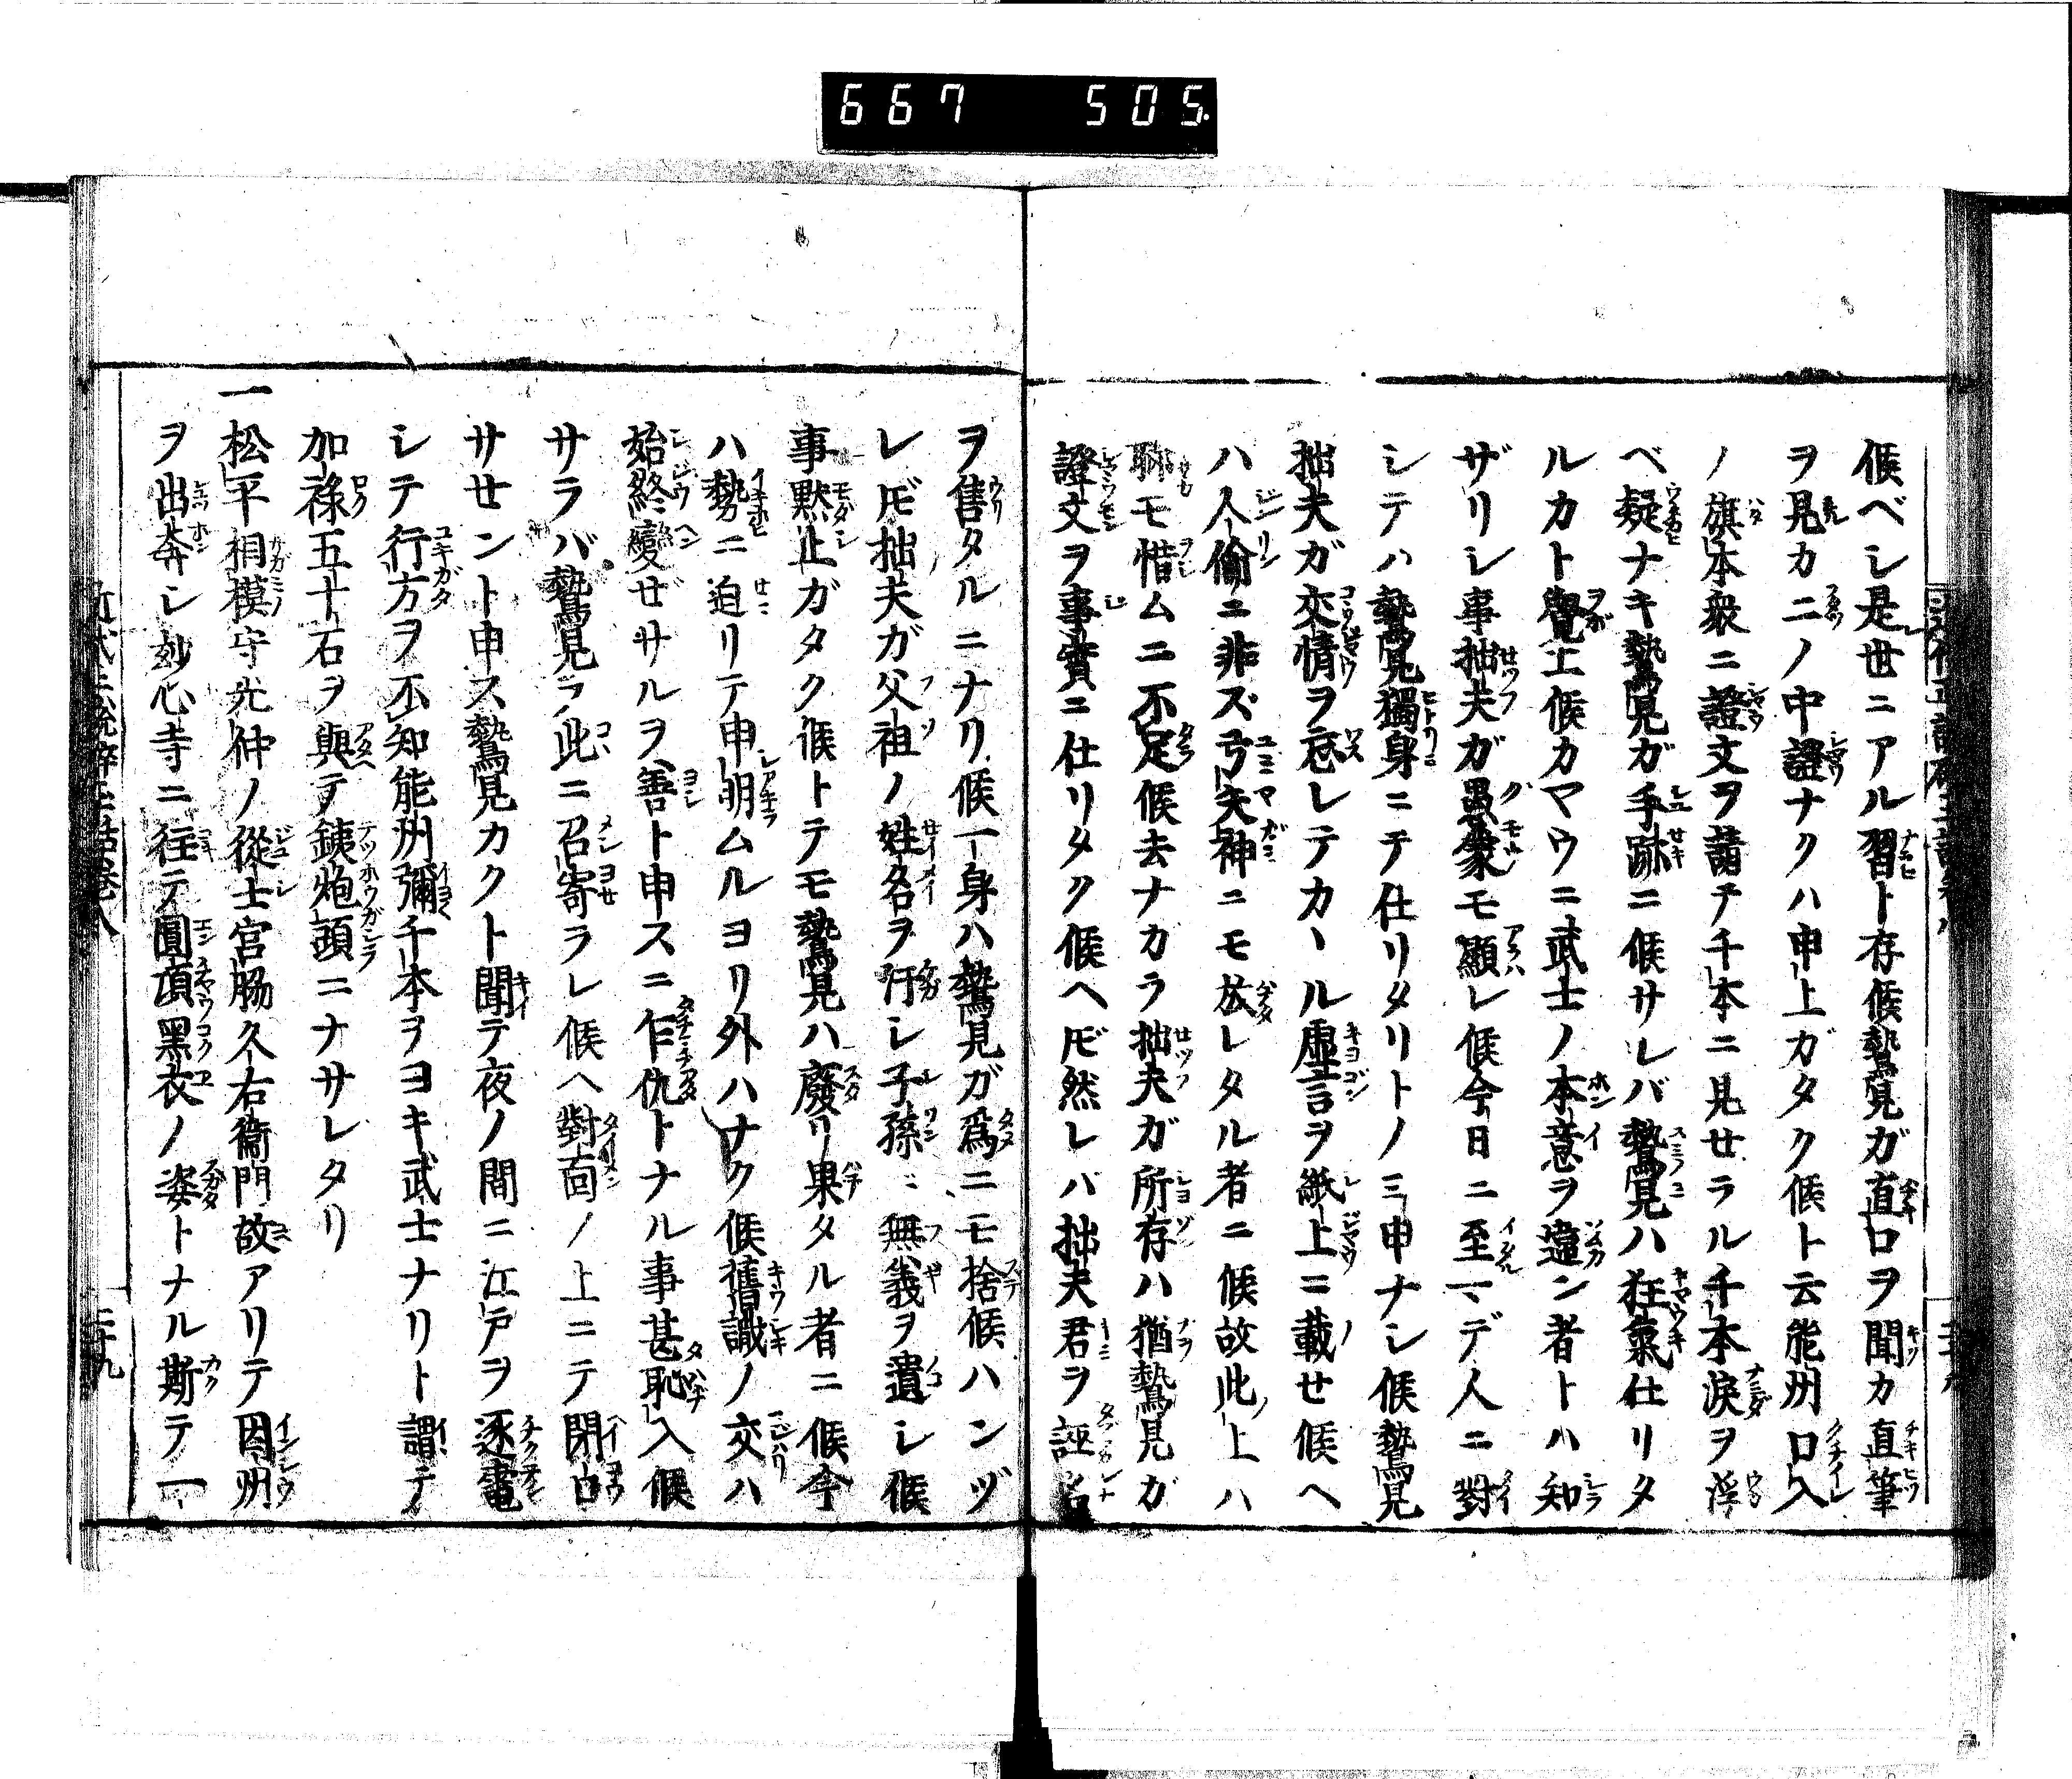 667 505.
候ベシ是世ニアル習ト存候鷙見ガ直口ヲ聞カ直筆
ヲ見カ二ノ中證ナクハ申上ガタク候ト云能州口入
ノ旗本衆ニ證文ヲ請テ千本ニ見セラル千本淚ヲ浮
ベ疑ナキ鷙見ガ手跡ニ候サレバ鷙見ハ狂氣仕リタ
ルカト覺エ候カマウニ武士ノ本意ヲ違ン者トハ知
ザリシ事拙夫ガ愚蒙モ顯レ候今日ニ至マデ人ニ對
シテハ鷙見獨身ニテ仕リタリトノミ申ナシ候鷙見
拙夫ガ交情ヲ忘レテカヽル虛言ヲ紙上ニ載せ候ヘ
ハ人倫ニ非ズ弓矢神ニモ放レタル者ニ候故此上ハ
聊モ惜ムニ不足候去ナカラ拙夫ガ所存ハ猶鷙見ガ
證文ヲ事實ニ仕リタク候ヘ𪜈然レバ拙夫君ヲ誣名
ヲ售タルニナリ候一身ハ鷙見ガ爲ニモ捨候ハンヅ
レ𪜈拙夫ガ父祖ノ姓名ヲ汚シ子孫ニ無義ヲ遺シ候
事默止ガタク候トテモ鷙見ハ廢リ果タル者ニ候今
ハ勢ニ迫リテ申明ムルヨリ外ハナク候舊識ノ交ハ
始終變ぜサルヲ善ト申スニ乍仇トナル事甚恥入候
サラバ鷙見ヲ此ニ召寄ラレ候ヘ對面ノ上ニテ閉口
サせント申ス鷙見カクト聞テ夜ノ間ニ江戸ヲ逐電
シテ行方ヲ不知能州彌千本ヲヨキ武士ナリト謂テ
加祿五十石ヲ與テ銕炮頭ニナサレタリ
一松平相模守光仲ノ從士宮脇久右衞門故アリテ因州
ヲ出奔シ妙心寺ニ往テ圓頂黑衣ノ姿トナル斯テ一